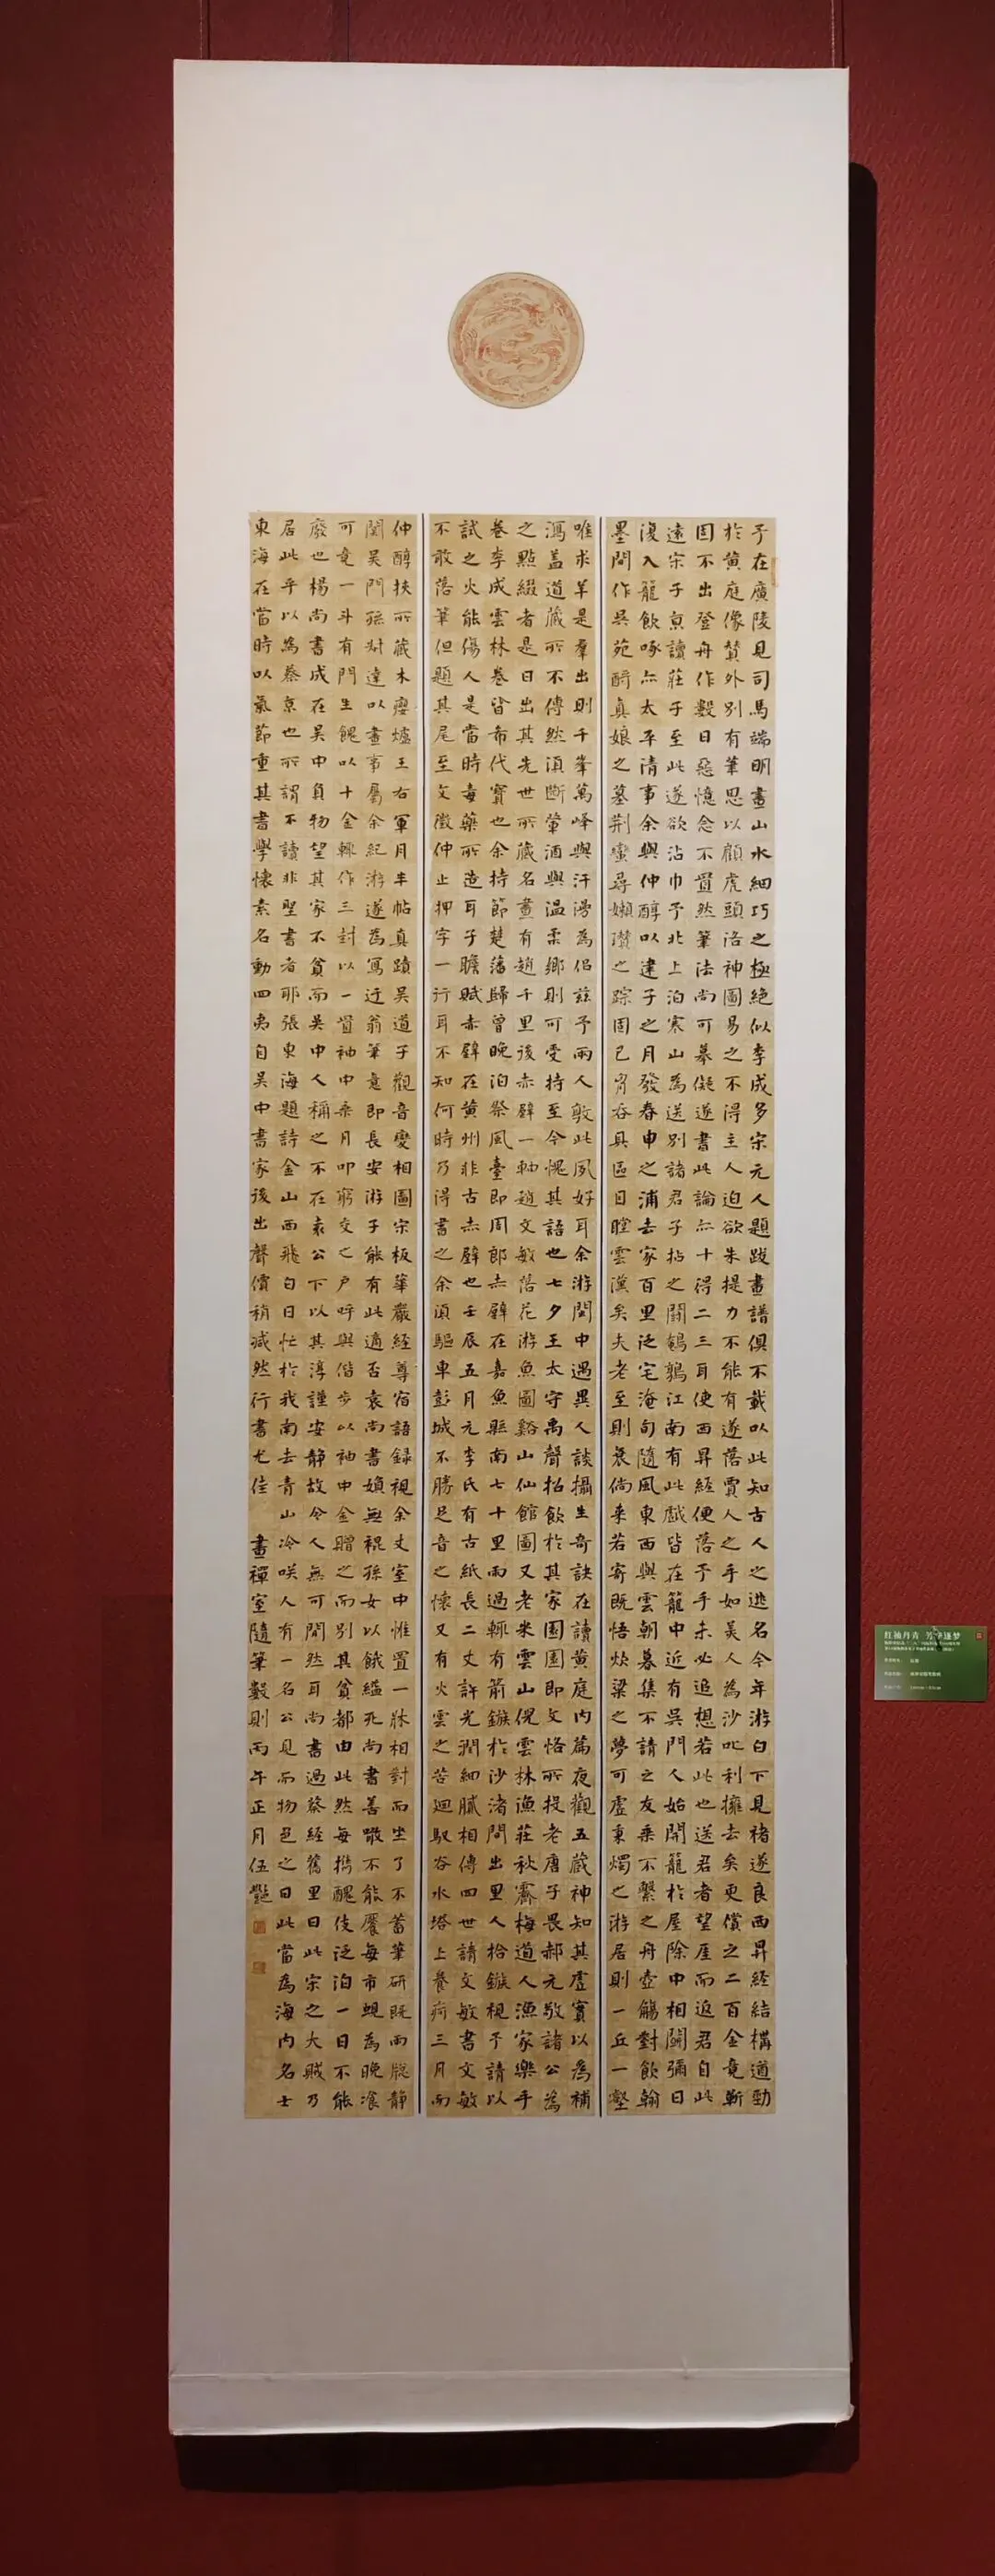 予在廣陵見司馬端明畫山水細巧之極絕似李成多宋元人題跋畫譜俱不載以此知古人之逃名今年游白下見褚遂良西昇經結構遒勁
於黃庭像贊外別有筆思以顧虎頭洛神圖易之不得主人迫欲朱提力不能有遂落賈人之手如美人為沙吒利擁去矣更償之二百金竟靳
固不出登舟作數日惡憶念不置然筆法尚可摹儗遂書此論亦十得二三耳使西昇經便落予手未必追想若此也送君者望崖而返君自此
遠宗子京讀莊子至此遂欲沾巾予北上泊寒山為送別諸君子拈之鬪鵪鶉江南有此戲皆在籠中近有吳門人始開籠於屋除中相鬪彌日
復入籠飲啄亦太平清事余與仲醇以建子之月發春申之浦去家百里泛宅淹旬隨風東西與雲朝暮集不請之友乘不繫之舟壺觴對飲翰
墨間作吳苑酹真娘之墓荆蠻尋嬾瓚之踪固已胷吞具區目瞠雲漢矣夫老至則衰倘來若寄既悟炊梁之夢可虛秉燭之游居則一丘一壑
唯求羊是羣出則千峯萬峰與汗漫為侶茲予兩人敦此夙好耳余游閩中遇異人談攝生奇訣在讀黃庭內篇夜觀五藏神知其虛實以為補
瀉盖道藏所不傳然須斷葷酒與温柔鄉則可受持至今愧其語也七夕王太守禹聲招飲於其家園園即文恪所投老唐子畏郝元敬諸公為
之點綴者是日出其先世所藏名畫有趙千里後赤壁一軸趙文敏落花游魚圖谿山仙館圖又老米雲山倪雲林漁莊秋霽梅道人漁家樂手
卷李成雲林卷皆希代寶也余持節楚藩歸曾晚泊祭風臺即周郎赤壁在嘉魚縣南七十里雨過輒有箭鏃於沙渚間出里人拾鏃視予請以
試之火能傷人是當時毒藥所造耳子瞻賦赤壁在黃州非古赤壁也壬辰五月元李氏有古紙長二丈許光潤細膩相傳四世請文敏書文敏
不敢落筆但題其尾至文徵仲止押字一行耳不知何時乃得書之余須驅車彭城不勝足音之懷又有火雲之苦迴馭谷水塔上養疴三月而
仲醇挾所藏木癭爐王右軍月半帖真蹟吳道子觀音變相圖宋板華嚴經尊宿語録視余丈室中惟置一牀相對而坐了不蓄筆研既雨牕静
闃吳門孫尌達以畫事屬余紀游遂為寫迂翁筆意即長安游子能有此適否袁尚書媍無裩孫女以餓縊死尚書善噉不能饜每市蜆為晚飡
可竟一斗有門生餽以十金輒作三封以一置袖中乘月叩窮交之户呼與偕步以袖中金贈之而别其貧都由此然每攜醜伎泛泊一日不能
廢也楊尚書成在吳中負物望其家不貧而吳中人稱之不在袁公下以其淳謹安静故令人無可間然耳尚書過蔡經舊里曰此宋之大賊乃
居此乎以為蔡京也所謂不讀非聖書者耶張東海題詩金山西飛白日忙於我南去青山冷咲人有一名公見而物色之曰此當為海内名士
東海在當時以氣節重其書學懷素名動四夷自吳中書家後出聲價稍減然行書尤佳 畫禪室隨筆數則丙午正月伍艷
红袖丹青 芳华逐梦